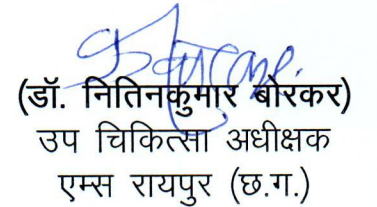 (डॉ. नितिनकुमार बोरकर)
उप चिकित्सा अधीक्षक
एम्स रायपुर (छ.ग.)